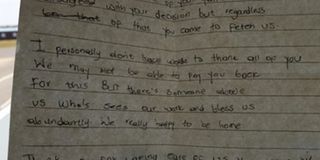 with your decision but regardless
of that you came to Fetch us.
I personally dont have words to thank all of you
We may not be able to pay you back
For this But there's someone above
us Who's sees our work and bless us
abundantly. We really happy to be home